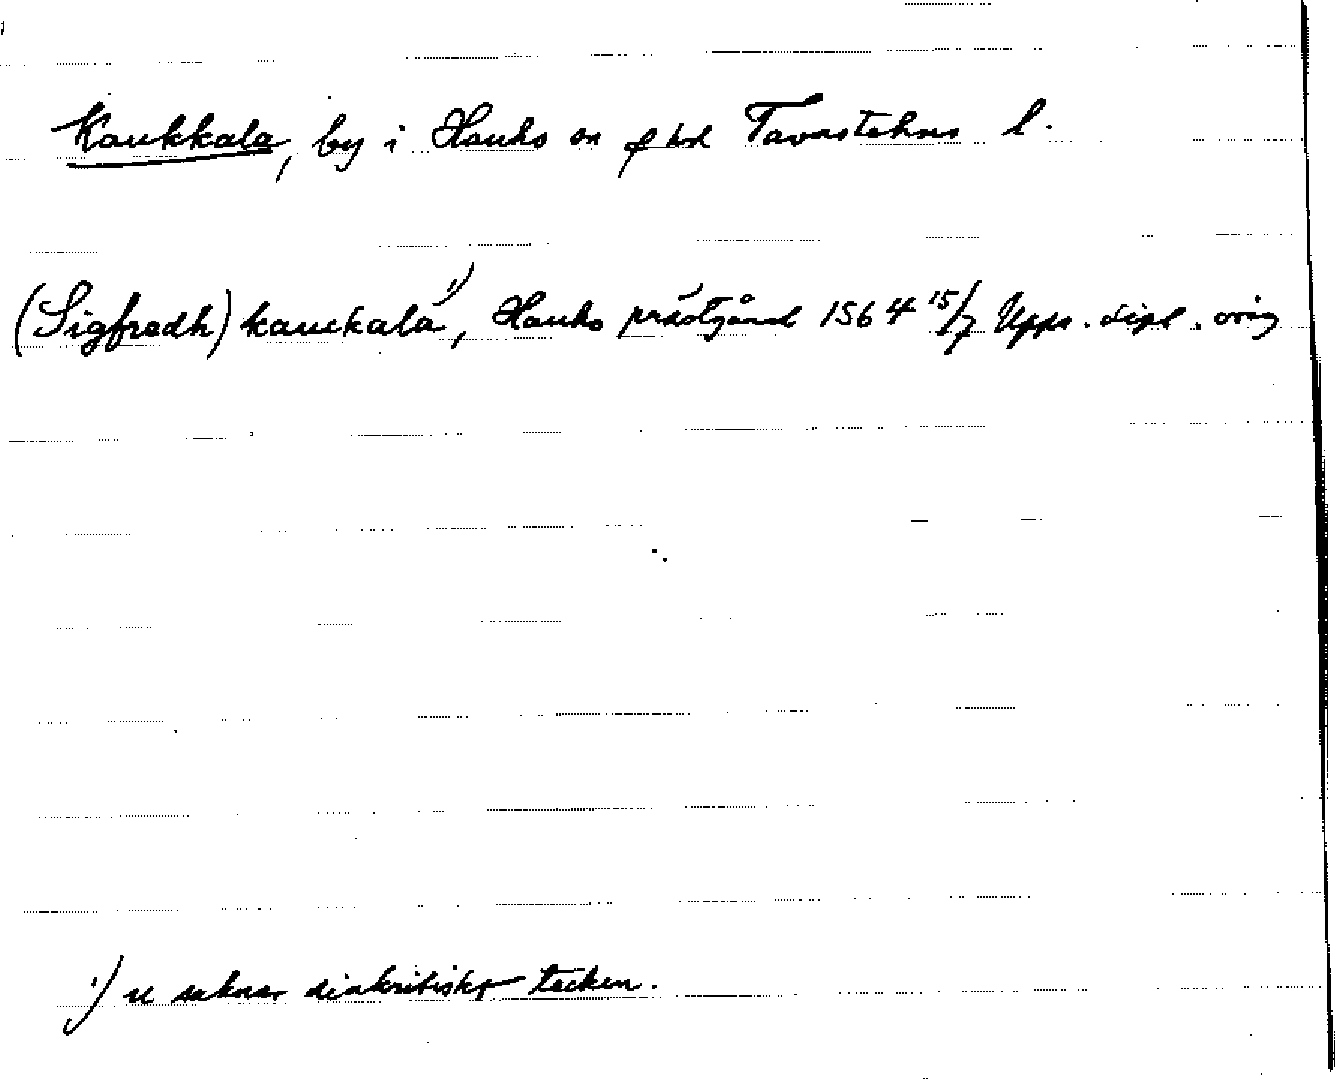 Kaukkala, by i Hauho sn o hd Tavastehus l.
(Sigfredh) kauckala 1), Hauho prästgård 1564 15/7 Upps. dipl. orig
1) u saknar diakritiskt tecken.